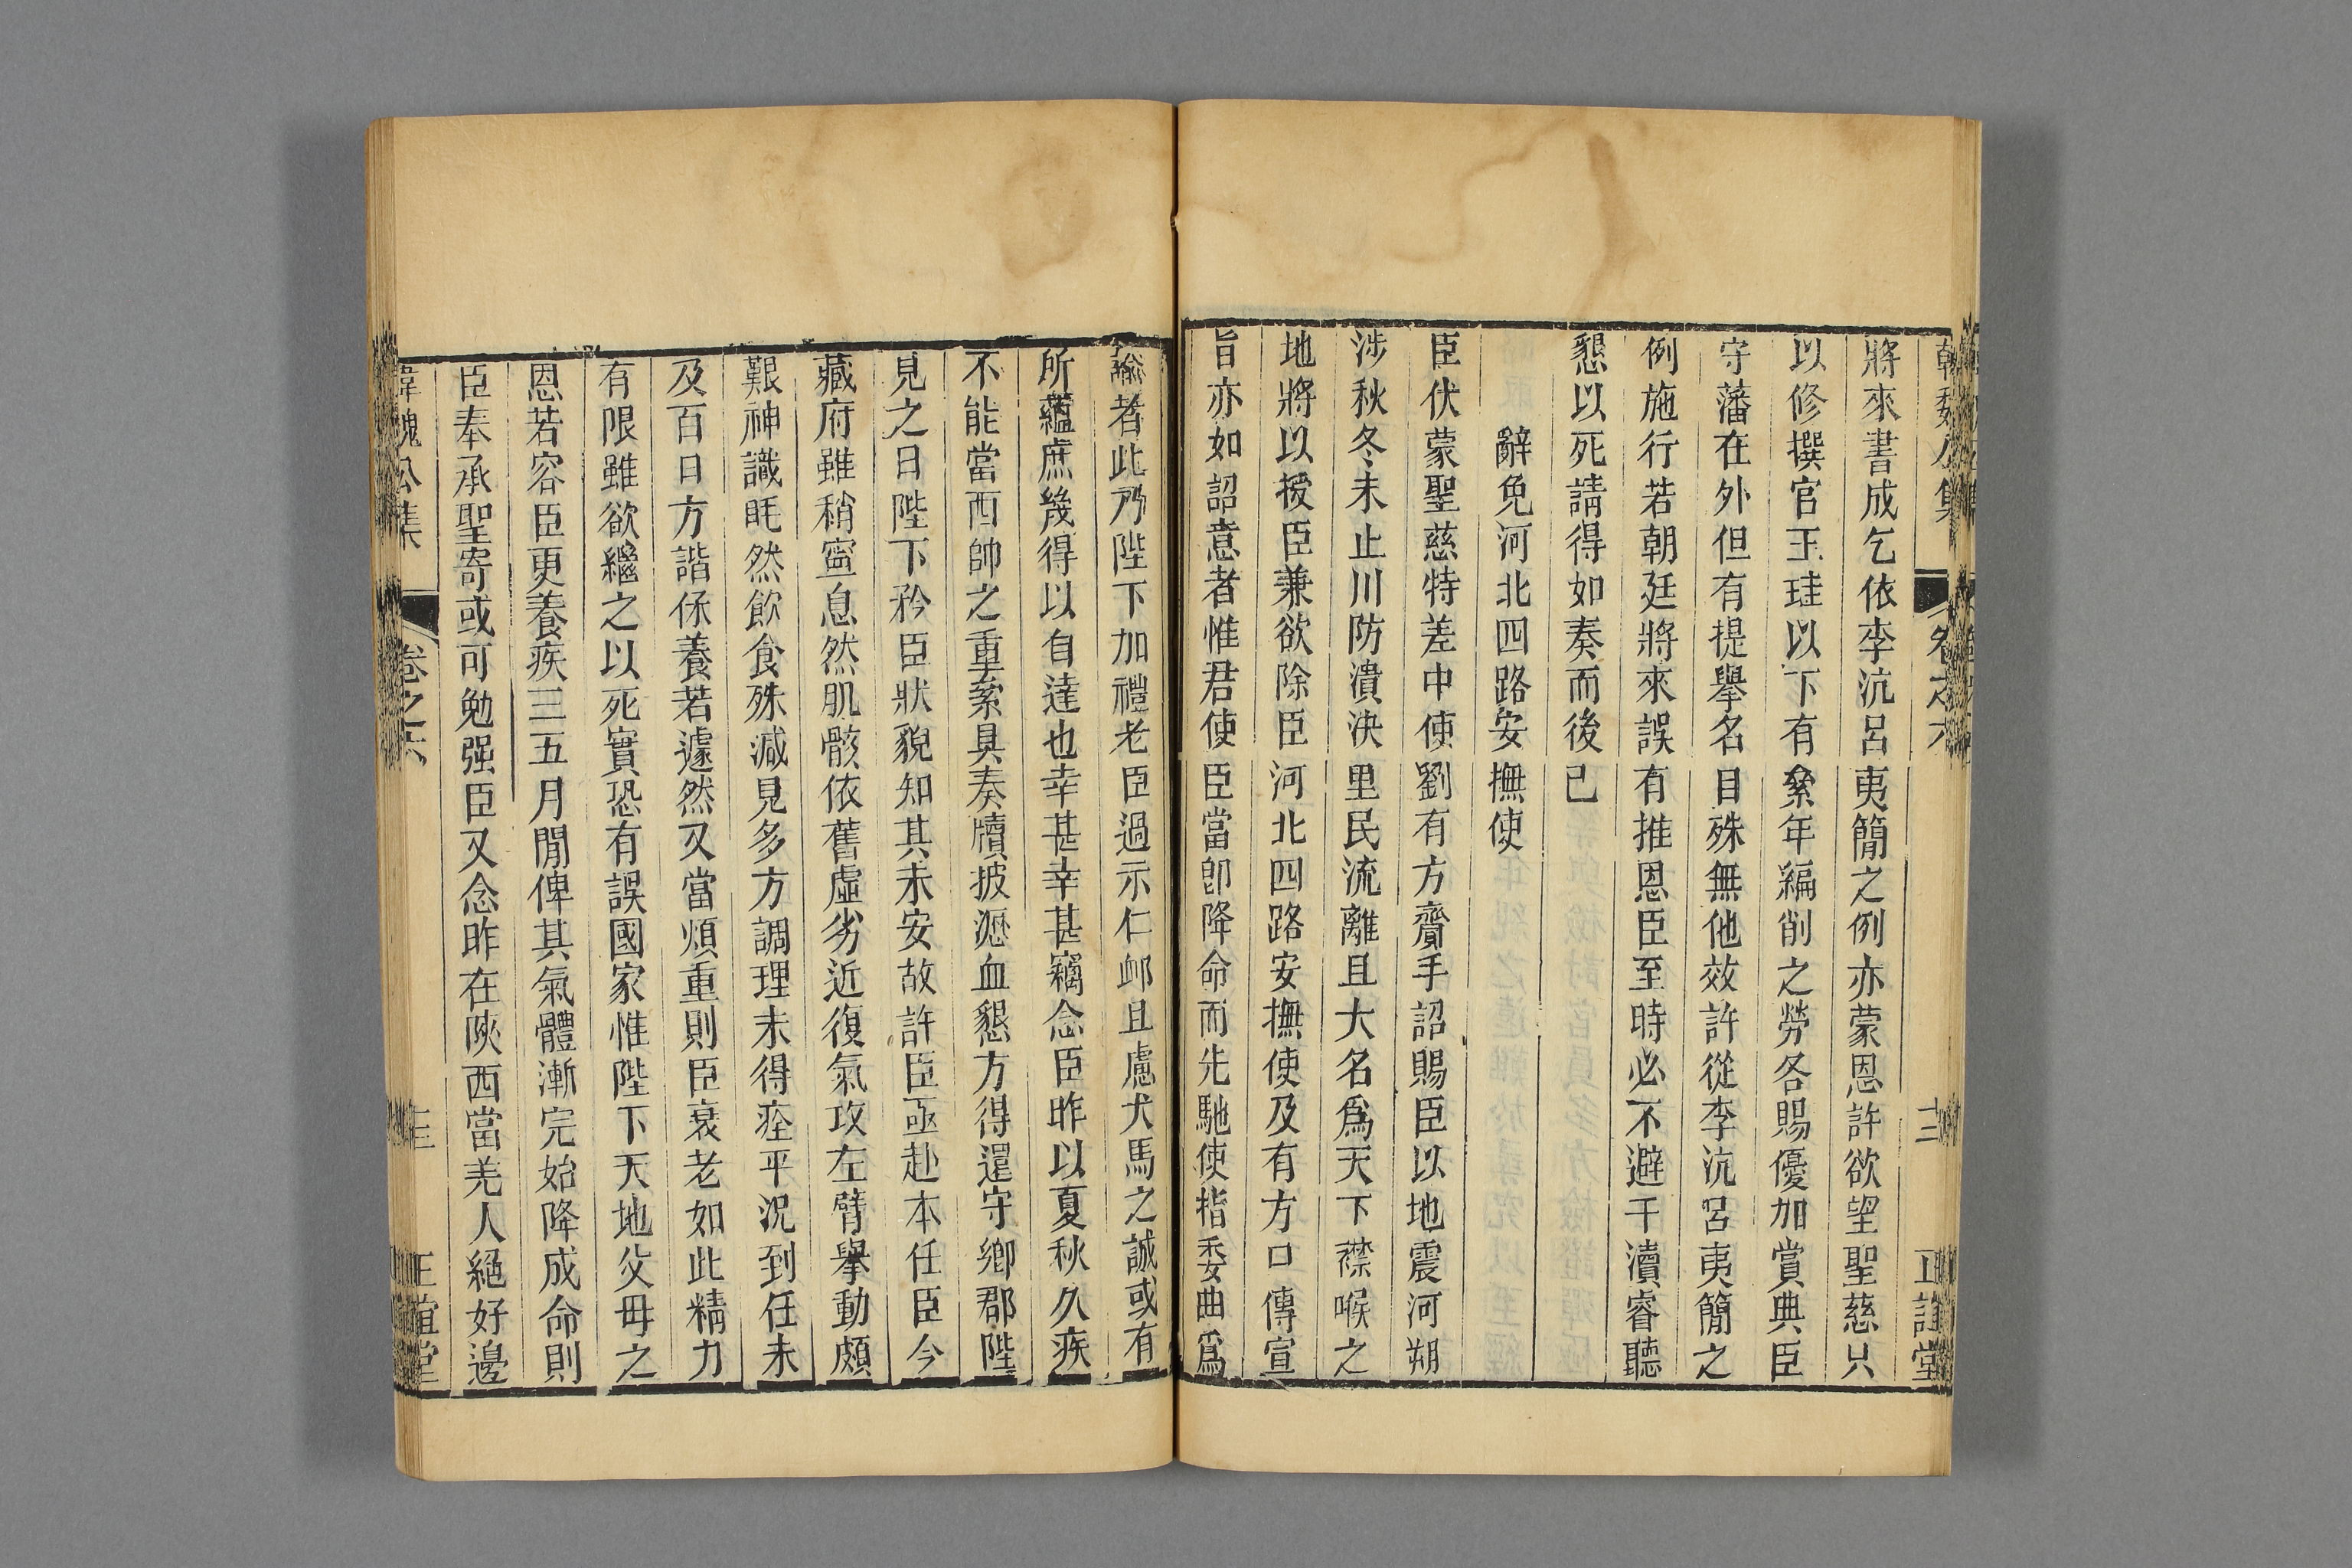 韓魏公集 卷之六 十三 正誼堂
將來書成乞依李沆呂夷簡之例亦蒙恩許欲望聖慈只
以修撰官王珪以下有絫年編削之勞各賜優加賞典臣
守藩在外但有提舉名目殊無他效許從李沆呂夷簡之
例施行若朝廷將來誤有推恩臣至時必不避干瀆睿聽
懇以死請得如奏而後已
辭免河北四路安撫使
臣伏蒙聖慈特差中使劉有方齎手詔賜臣以地震河朔
涉秋冬未止川防潰決里民流離且大名爲天下襟喉之
地將以授臣兼欲除臣河北四路安撫使及有方口傳宣
旨亦如詔意者惟君使臣當卽降命而先馳使指委曲爲
諭者此乃陛下加禮老臣過示仁卹且慮犬馬之誠或有
所蘊庶幾得以自達也幸甚幸甚竊念臣昨以夏秋久疾
不能當西帥之重絫具奏牘披瀝血懇方得還守鄉郡陛
見之日陛下矜臣狀貌知其未安故許臣亟赴本任臣今
藏府雖稍寧息然肌骸依舊虛劣近復氣攻左臂舉動頗
艱神識眊然飲食殊減見多方調理未得痊平況到任未
及百日方諧保養若遽然又當煩重則臣衰老如此精力
有限雖欲繼之以死實恐有誤國家惟陛下天地父母之
恩若容臣更養疾三五月閒俾其氣體漸完始降成命則
臣奉承聖寄或可勉强臣又念昨在陝西當羌人絕好邊
韓魏公集 卷之六 正誼堂